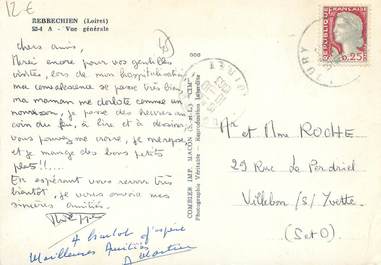 12€
REBRECHIEN (Loiret)
52-4 A - Vue générale
Chers amis,
Merci encore pour vos gentilles
visites, lors de mon hospitalisation
ma convalescence se passe très bien,
ma maman me dorlote comme un
nourrisson, je passe des heures au
coin du feu, à lire et à dessiner,
vous pouvez me croire, je mérage,
et je mange des bons petits
plats!!....
En espérant vous revoir très
bientôt, je vous envoie mes
sincères amitiés.
A bientôt j'espère
Meilleures Amitiés
Martine
COMBIER IMP. MACON (S.-et-L.) "CIM"
Photographie Véritable - Reproduction Interdite
REPUBLIQUE FRANÇAISE
0,25
Mr et Mme ROCHE
29 Rue Le Perdriel
Villebon /S/ Yvette.
(S et O).